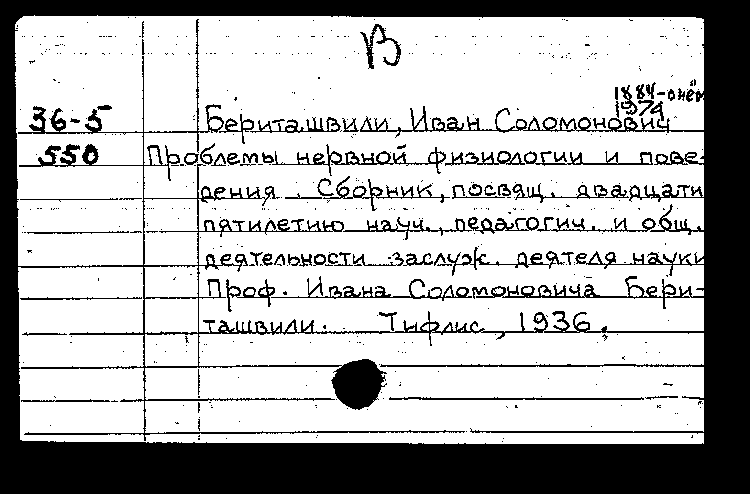 В
1884- о нём
1974
36-5 Бериташвили, Иван Соломонович
550 Проблемы нервной физиологии и пове-
дения. Сборник, посвящ. двадцати
пятилетию науч., педагогич. и общ.
деятельности заслуж. деятеля науки
Проф. Ивана Соломоновича Бери-
ташвили. Тифлис, 1936.